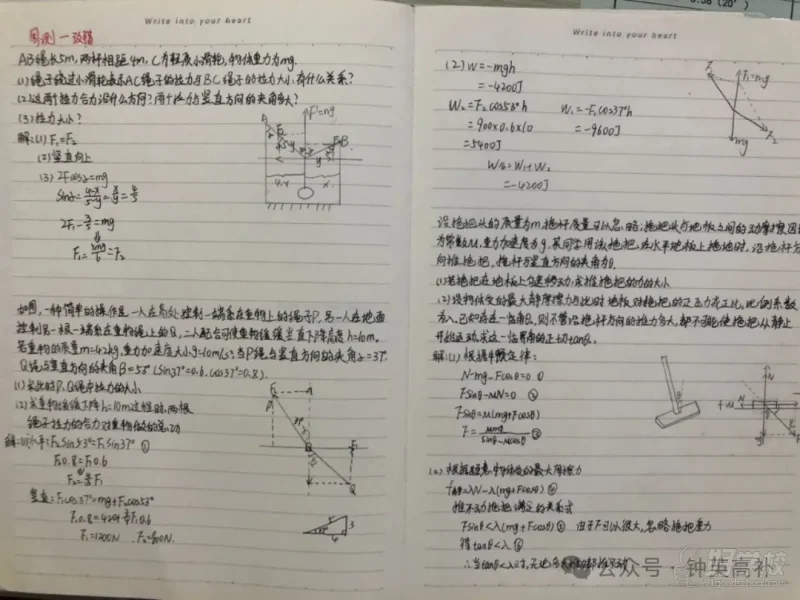 Write into your heart
周测一改错
AB绳长5m,两杆相距4m,C为轻质小滑轮,物体重力为mg.
(1)绳子绕过小滑轮表示AC绳子的拉力与BC绳子的拉力大小有什么关系?
(2)这两个拉力合力沿什么方向?两个拉力与竖直方向的夹角多大?
(3)拉力大小?
解:(1) F₁=F₂
(2)竖直向上
(3) 2Fcosα=mg
F₁= =F₂
如图,一种简单的操作是,一人在高处控制一端系在重物上的绳子P,另一人在地面
控制另一根一端系在重物上的绳Q,二人配合可使重物缓缓竖直下降高度h=10m.
若重物的质量m=42kg,重力加速度大小g=10m/s²,当P绳与竖直方向的夹角α=37°
Q绳与竖直方向的夹角β=53°(sin37°=0.6,cos37°=0.8).
(1)求此时P、Q绳中拉力的大小
(2)求重物缓缓下降h=10m过程时,两根
绳子拉力的合力对重物做的总功
解:(1)水平:F₂sin53°=F₁sin37° ①
F₂0.8=F₁0.6
F₂=¾F₁
竖直:F₁cos37°=mg+F₂cos53°
F₁0.8=420+¾F₁0.6
F₁=1200N F₂=900N.
Write into your heart
(2) W=-mgh
=-4200J
W₂=F₂cos53°h W₁=-F₁cos37°h
=900×0.6×10 =-9600J
=5400J
W合=W₁+W₂
=-4200J
设拖把头的质量为m,拖杆质量可以忽略;拖把头与地板之间的动摩擦因
为常数μ,重力加速度为g,某同学用该拖把在水平地板上拖地时,沿拖杆方
向推拖把,拖杆与竖直方向的夹角为θ.
(1)若拖把在地板上匀速移动,求推拖把的力的大小
(2)设能使拖把的最大静摩擦力与此时地板对拖把的正压力成正比,比例系数
为λ,已知存在一临界角θ₀,则不管沿拖杆方向的推力多大,都不可能使拖把从静止
开始运动,求这一临界角的正切tanθ₀
解:(1) 根据牛顿定律:
N-mg-Fcosθ=0 ①
Fsinθ-μN=0 ②
Fsinθ=μ(mg+Fcosθ)
F=μmg/(sinθ-μcosθ) ③
fm=λN=λ(mg+Fcosθ) ④
推不动拖把满足的关系式
Fsinθ<λ(mg+Fcosθ) ⑤ 由于F可以很大,忽略拖把重力
得tanθ<λ ⑥
∴当tanθ<λ时,
公众号·钟英高补